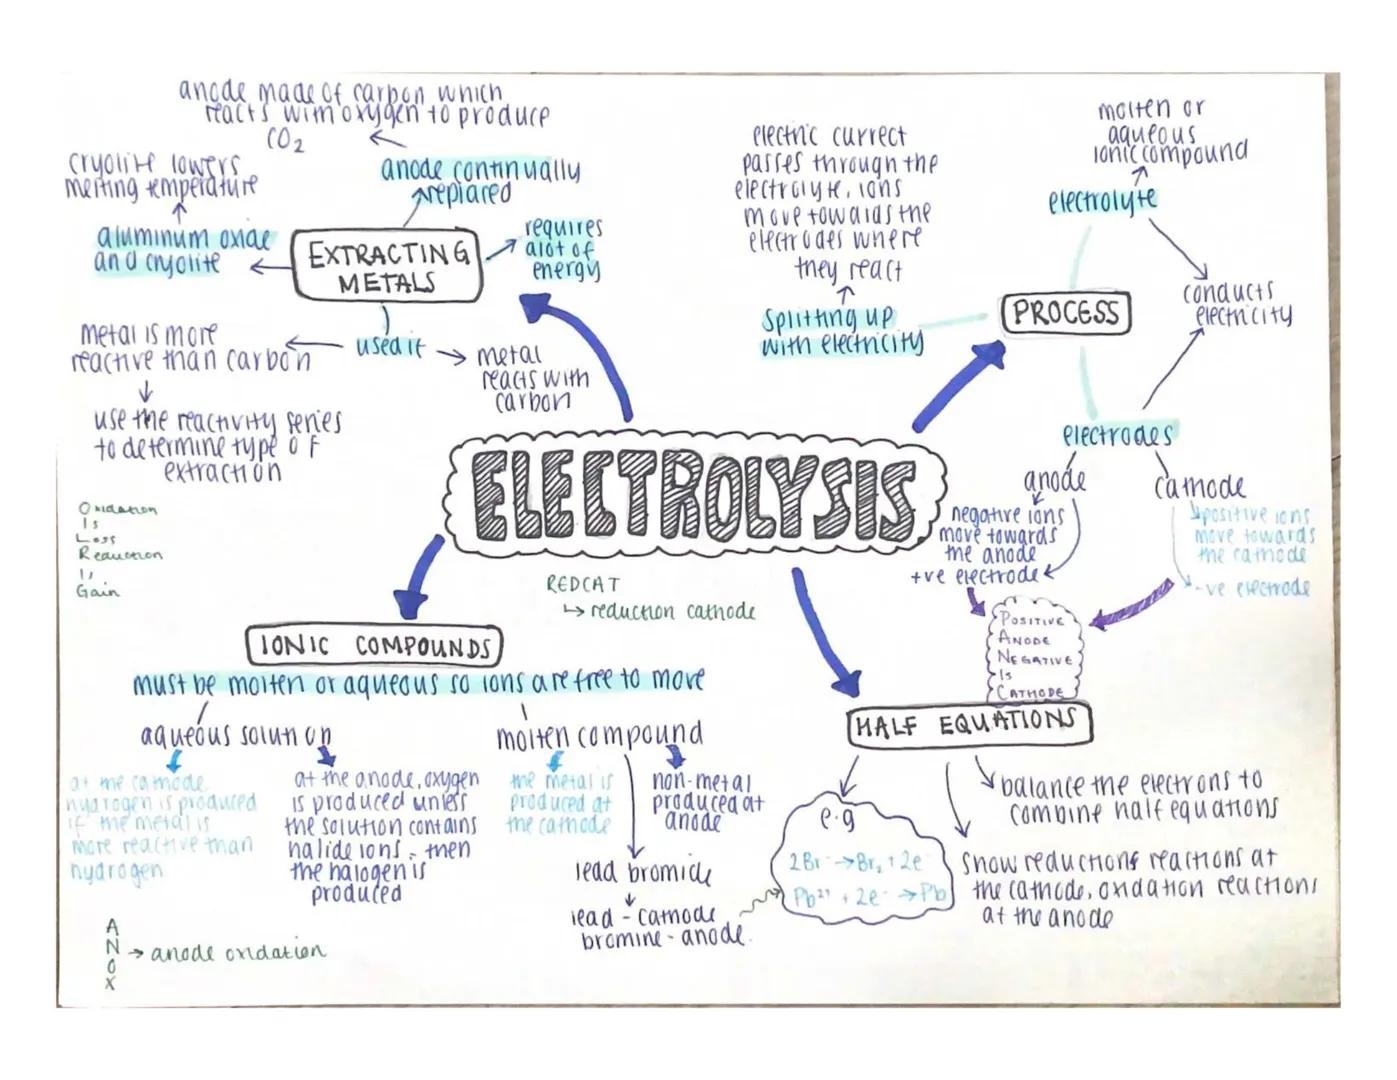 anode made of carbon which
reacts with oxygen to produce
CO₂
anode continually
replaced
cryolite lowers
melting temperature
aluminum oxide
and cryolite
EXTRACTING
METALS
requires
alot of
energy
used if
metal is more
reactive than carbon
metal
reacts with
carbon
use the reactivity series
to determine type of
extraction
electric currect
passes through the
electrolyte, ions
move towards the
electrodes where
they react
Splitting up
with electricity
PROCESS
molten or
aqueous
ionic compound
electrolyte
conducts
electricity
electrodes
anode
negative ions
move towards
the anode
+ve electrode
cathode
positive ions
move towards
the cathode
-ve electrode
POSITIVE
ANODE
NEGATIVE
IS
CATHODE
ELECTROLYSIS
Oxidation
Is
Loss
Reduction
Is
Gain
REDCAT
↳ reduction cathode
IONIC COMPOUNDS
must be molten or aqueous so ions are free to move
aqueous solution
at the cathode,
hydrogen is produced
if the metal is
more reactive than
hydrogen
at the anode, oxygen
is produced unless
the solution contains
halide ions, then
the halogen is
produced
molten compound
the metal is
produced at
the cathode
non-metal
produced at
anode
lead bromide
lead - cathode
bromine - anode.
HALF EQUATIONS
e.g
2Br⁻ → Br₂ + 2e⁻
Pb²⁺ + 2e⁻ → Pb
balance the electrons to
combine half equations
Show reductions reactions at
the cathode, oxidation reactions
at the anode
A
N
O
X
→ anode oxidation